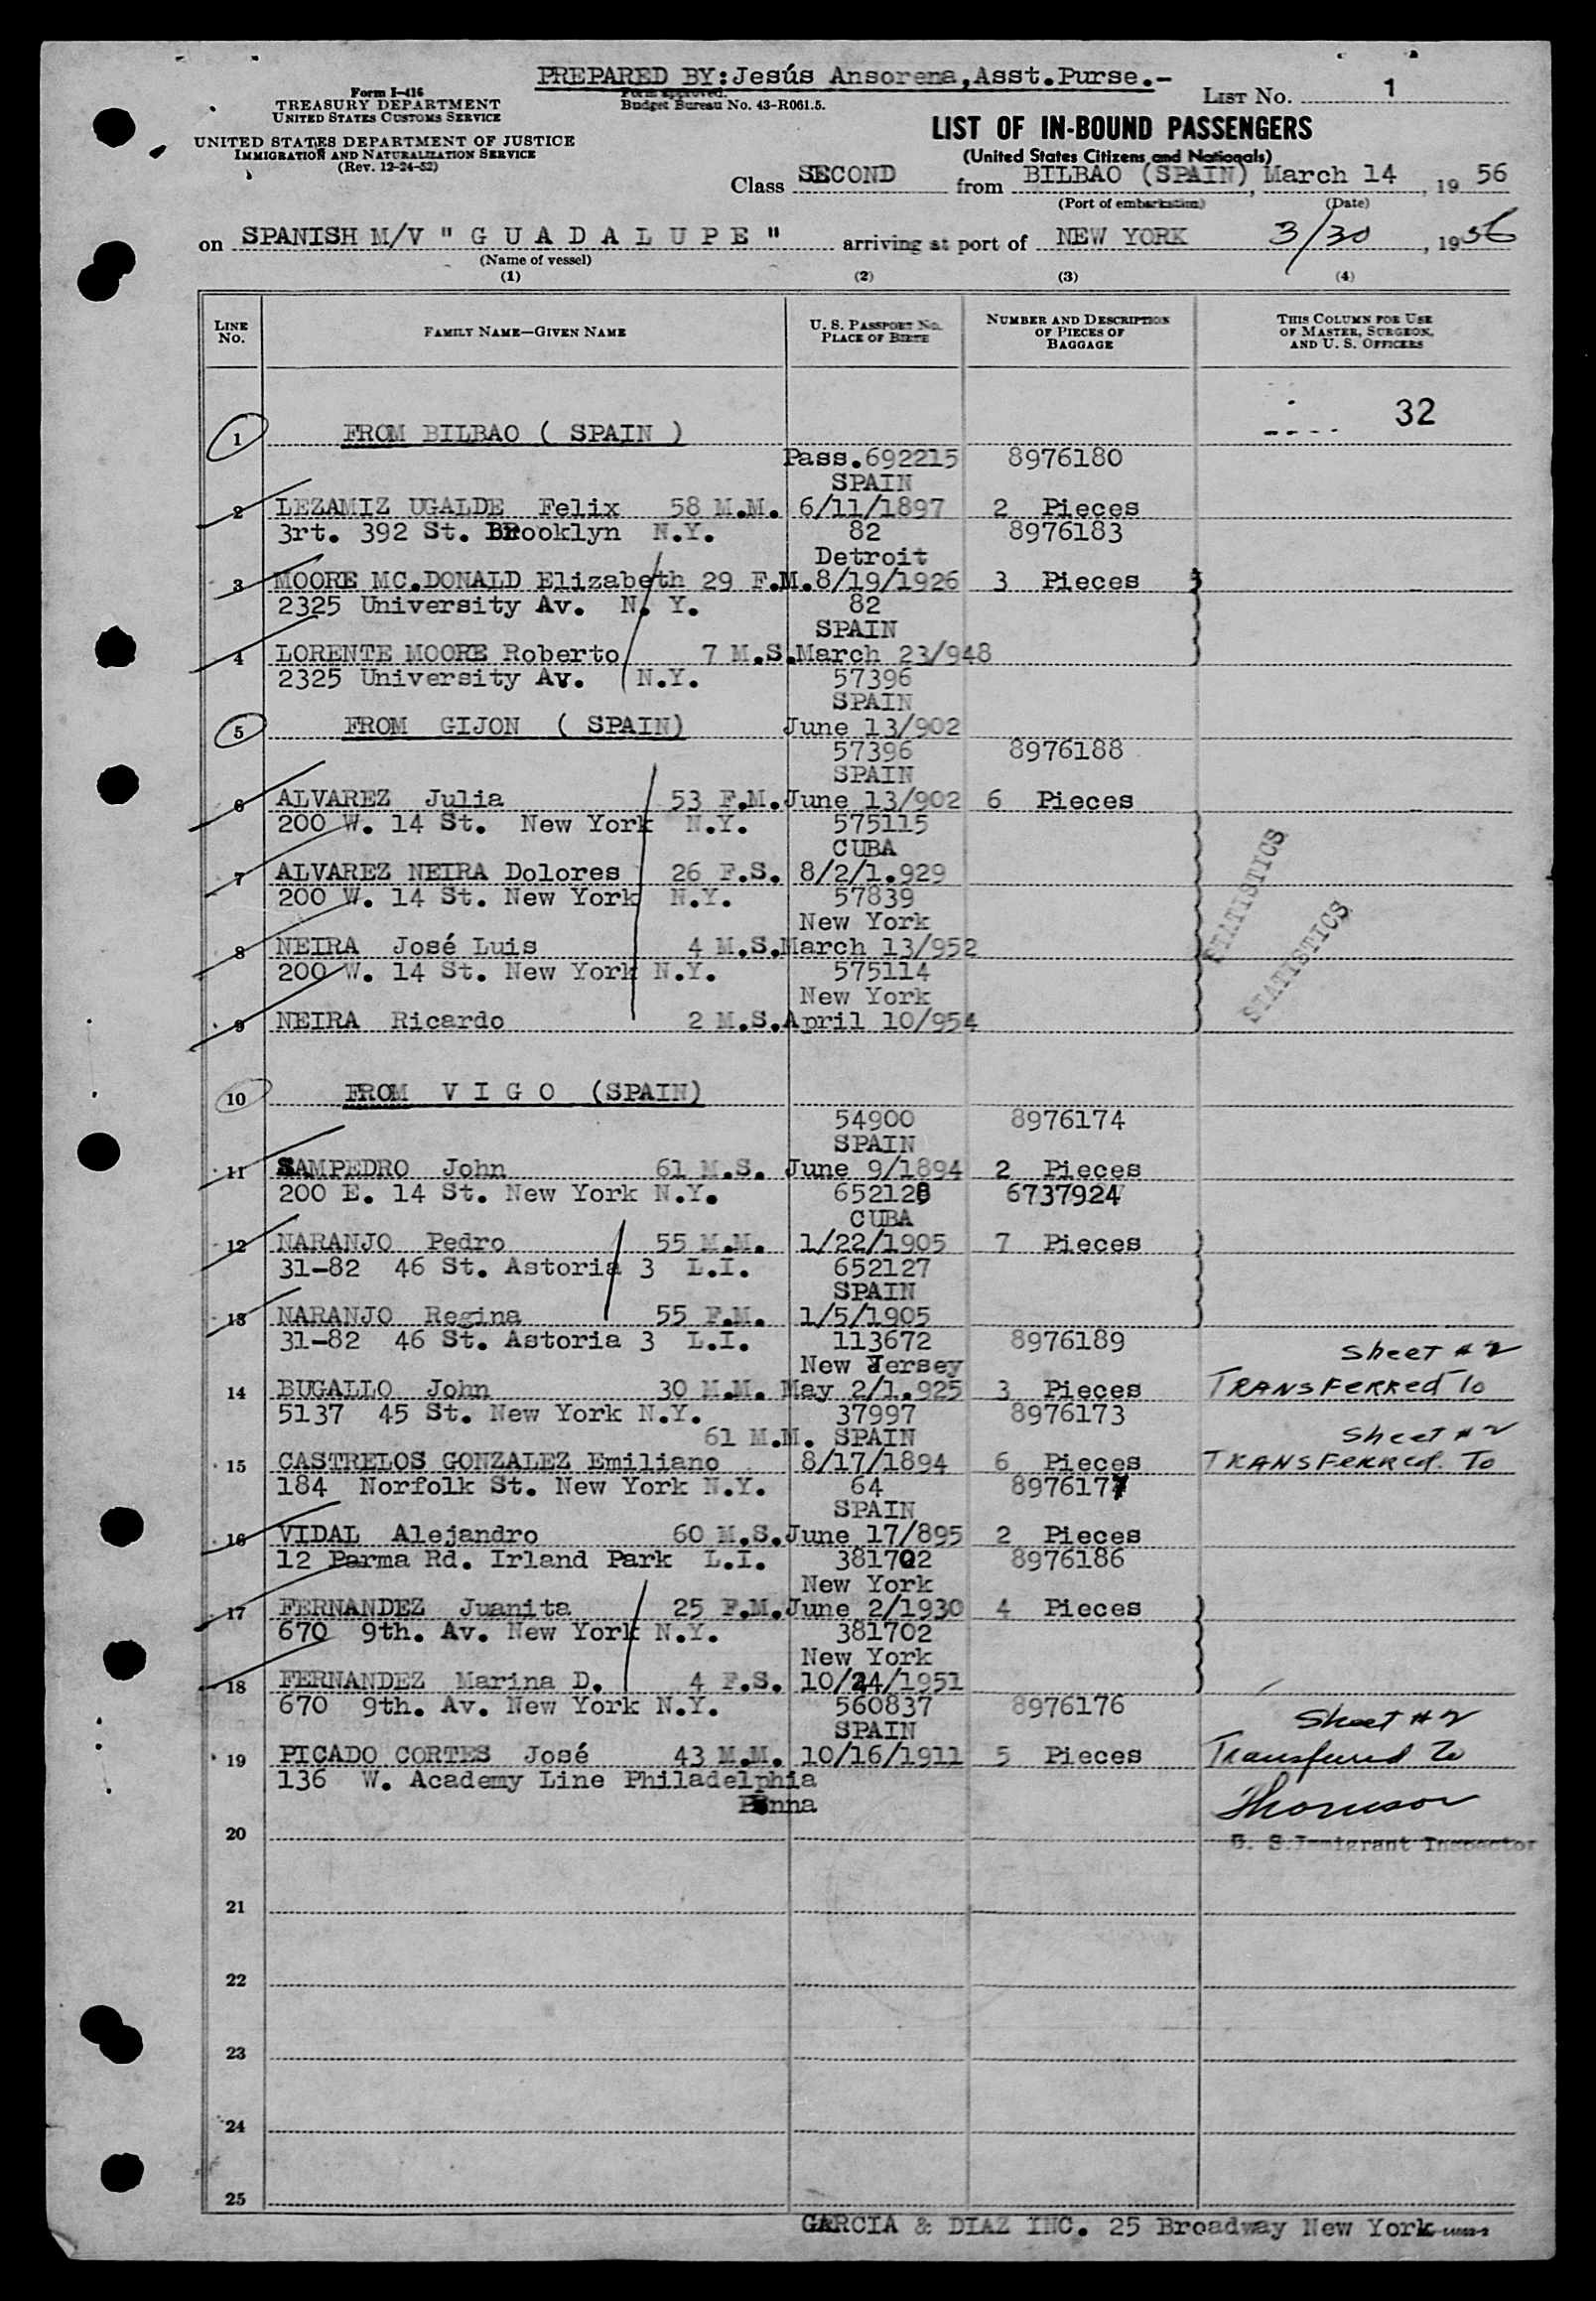 PREPARED BY:Jesús Ansorena,Asst.Purse.-
Form I-416
TREASURY DEPARTMENT
UNITED STATES CUSTOMS SERVICE
Form approved.
Budget Bureau No. 43-R061.5.
LIST No. 1
UNITED STATES DEPARTMENT OF JUSTICE
IMMIGRATION AND NATURALIZATION SERVICE
(Rev. 12-24-52)
LIST OF IN-BOUND PASSENGERS
(United States Citizens and Nationals)
Class SECOND from BILBAO (SPAIN), March 14, 19 56
(Port of embarkation) (Date)
on SPANISH M/V " G U A D A L U P E " arriving at port of NEW YORK 3/30, 1956
(Name of vessel)
(1) (2) (3) (4)
LINE No. FAMILY NAME—GIVEN NAME U. S. PASSPORT No. PLACE OF BIRTH NUMBER AND DESCRIPTION OF PIECES OF BAGGAGE THIS COLUMN FOR USE OF MASTER, SURGEON, AND U. S. OFFICERS
32
1 FROM BILBAO ( SPAIN )
Pass.692215 8976180
SPAIN
2 LEZAMIZ UGALDE Felix 58 M.M. 6/11/1897 2 Pieces
3rt. 392 St. Brooklyn N.Y. 82 8976183
Detroit
3 MOORE MC.DONALD Elizabeth 29 F.M. 8/19/1926 3 Pieces
2325 University Av. N. Y. 82
SPAIN
4 LORENTE MOORE Roberto 7 M.S. March 23/948
2325 University Av. N.Y. 57396
SPAIN
5 FROM GIJON ( SPAIN) June 13/902
57396 8976188
SPAIN
6 ALVAREZ Julia 53 F.M. June 13/902 6 Pieces
200 W. 14 St. New York N.Y. 575115
CUBA
7 ALVAREZ NEIRA Dolores 26 F.S. 8/2/1.929
200 W. 14 St. New York N.Y. 57839
New York
8 NEIRA José Luis 4 M.S. March 13/952
200 W. 14 St. New York N.Y. 575114
New York
9 NEIRA Ricardo 2 M.S. April 10/954
STATISTICS
STATISTICS
10 FROM V I G O (SPAIN)
54900 8976174
SPAIN
11 SAMPEDRO John 61 M.S. June 9/1894 2 Pieces
200 E. 14 St. New York N.Y. 652128 6737924
CUBA
12 NARANJO Pedro 55 M.M. 1/22/1905 7 Pieces
31-82 46 St. Astoria 3 L.I. 652127
SPAIN
13 NARANJO Regina 55 F.M. 1/5/1905
31-82 46 St. Astoria 3 L.I. 113672 8976189
New Jersey Sheet # 2
14 BUGALLO John 30 M.M. May 2/1.925 3 Pieces TRANSFERRED To
5137 45 St. New York N.Y. 37997 8976173
61 M.M. SPAIN Sheet # 2
15 CASTRELOS GONZALEZ Emiliano 8/17/1894 6 Pieces TRANSFERRED. To
184 Norfolk St. New York N.Y. 64 8976177
SPAIN
16 VIDAL Alejandro 60 M.S. June 17/895 2 Pieces
12 Parma Rd. Irland Park L.I. 381702 8976186
New York
17 FERNANDEZ Juanita 25 F.M. June 2/1930 4 Pieces
670 9th. Av. New York N.Y. 381702
New York
18 FERNANDEZ Marina D. 4 F.S. 10/24/1951
670 9th. Av. New York N.Y. 560837 8976176
SPAIN Sheet # 2
19 PICADO CORTES José 43 M.M. 10/16/1911 5 Pieces Transferred To
136 W. Academy Line Philadelphia
Penna
Thomson
20
U. S. Immigrant Inspector
21
22
23
24
25
GARCIA & DIAZ INC. 25 Broadway New York